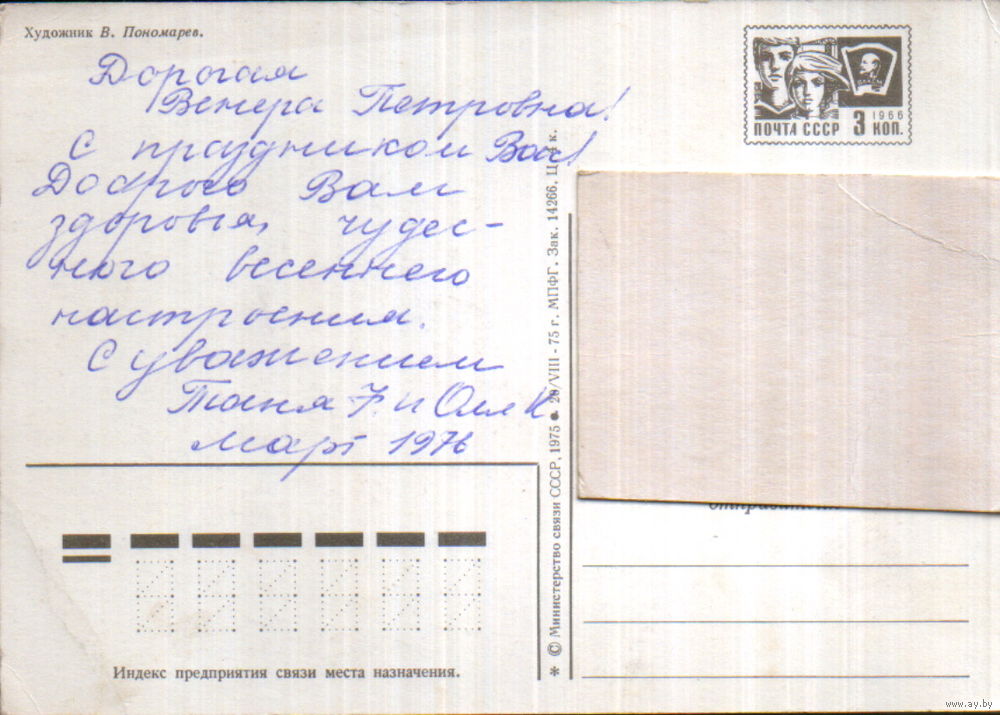 Художник В. Пономарев.
Дорогая
Венера Петровна!
С праздником Вас!
Доброго Вам
здоровья, чудес-
ного весеннего
настроения.
С уважением
Таня и Оля К
Март 1976
ПОЧТА СССР 3 КОП. 1966
Индекс предприятия связи места назначения.
* © Министерство связи СССР, 1975 ● 20/VIII - 75 г. МПФГ. Зак. 14266. Ц. к.
www.ay.by